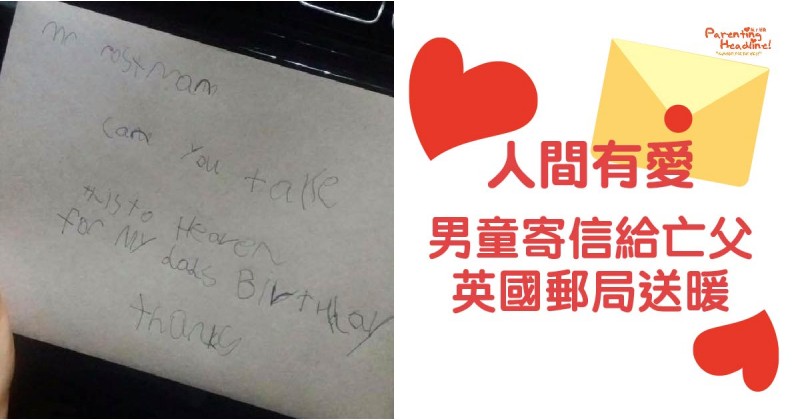 Mr Postman
Can You take
this to Heaven
for My dads BirtHday
thanks
Parenting
Headline!
人間有愛
男童寄信給亡父
英國郵局送暖